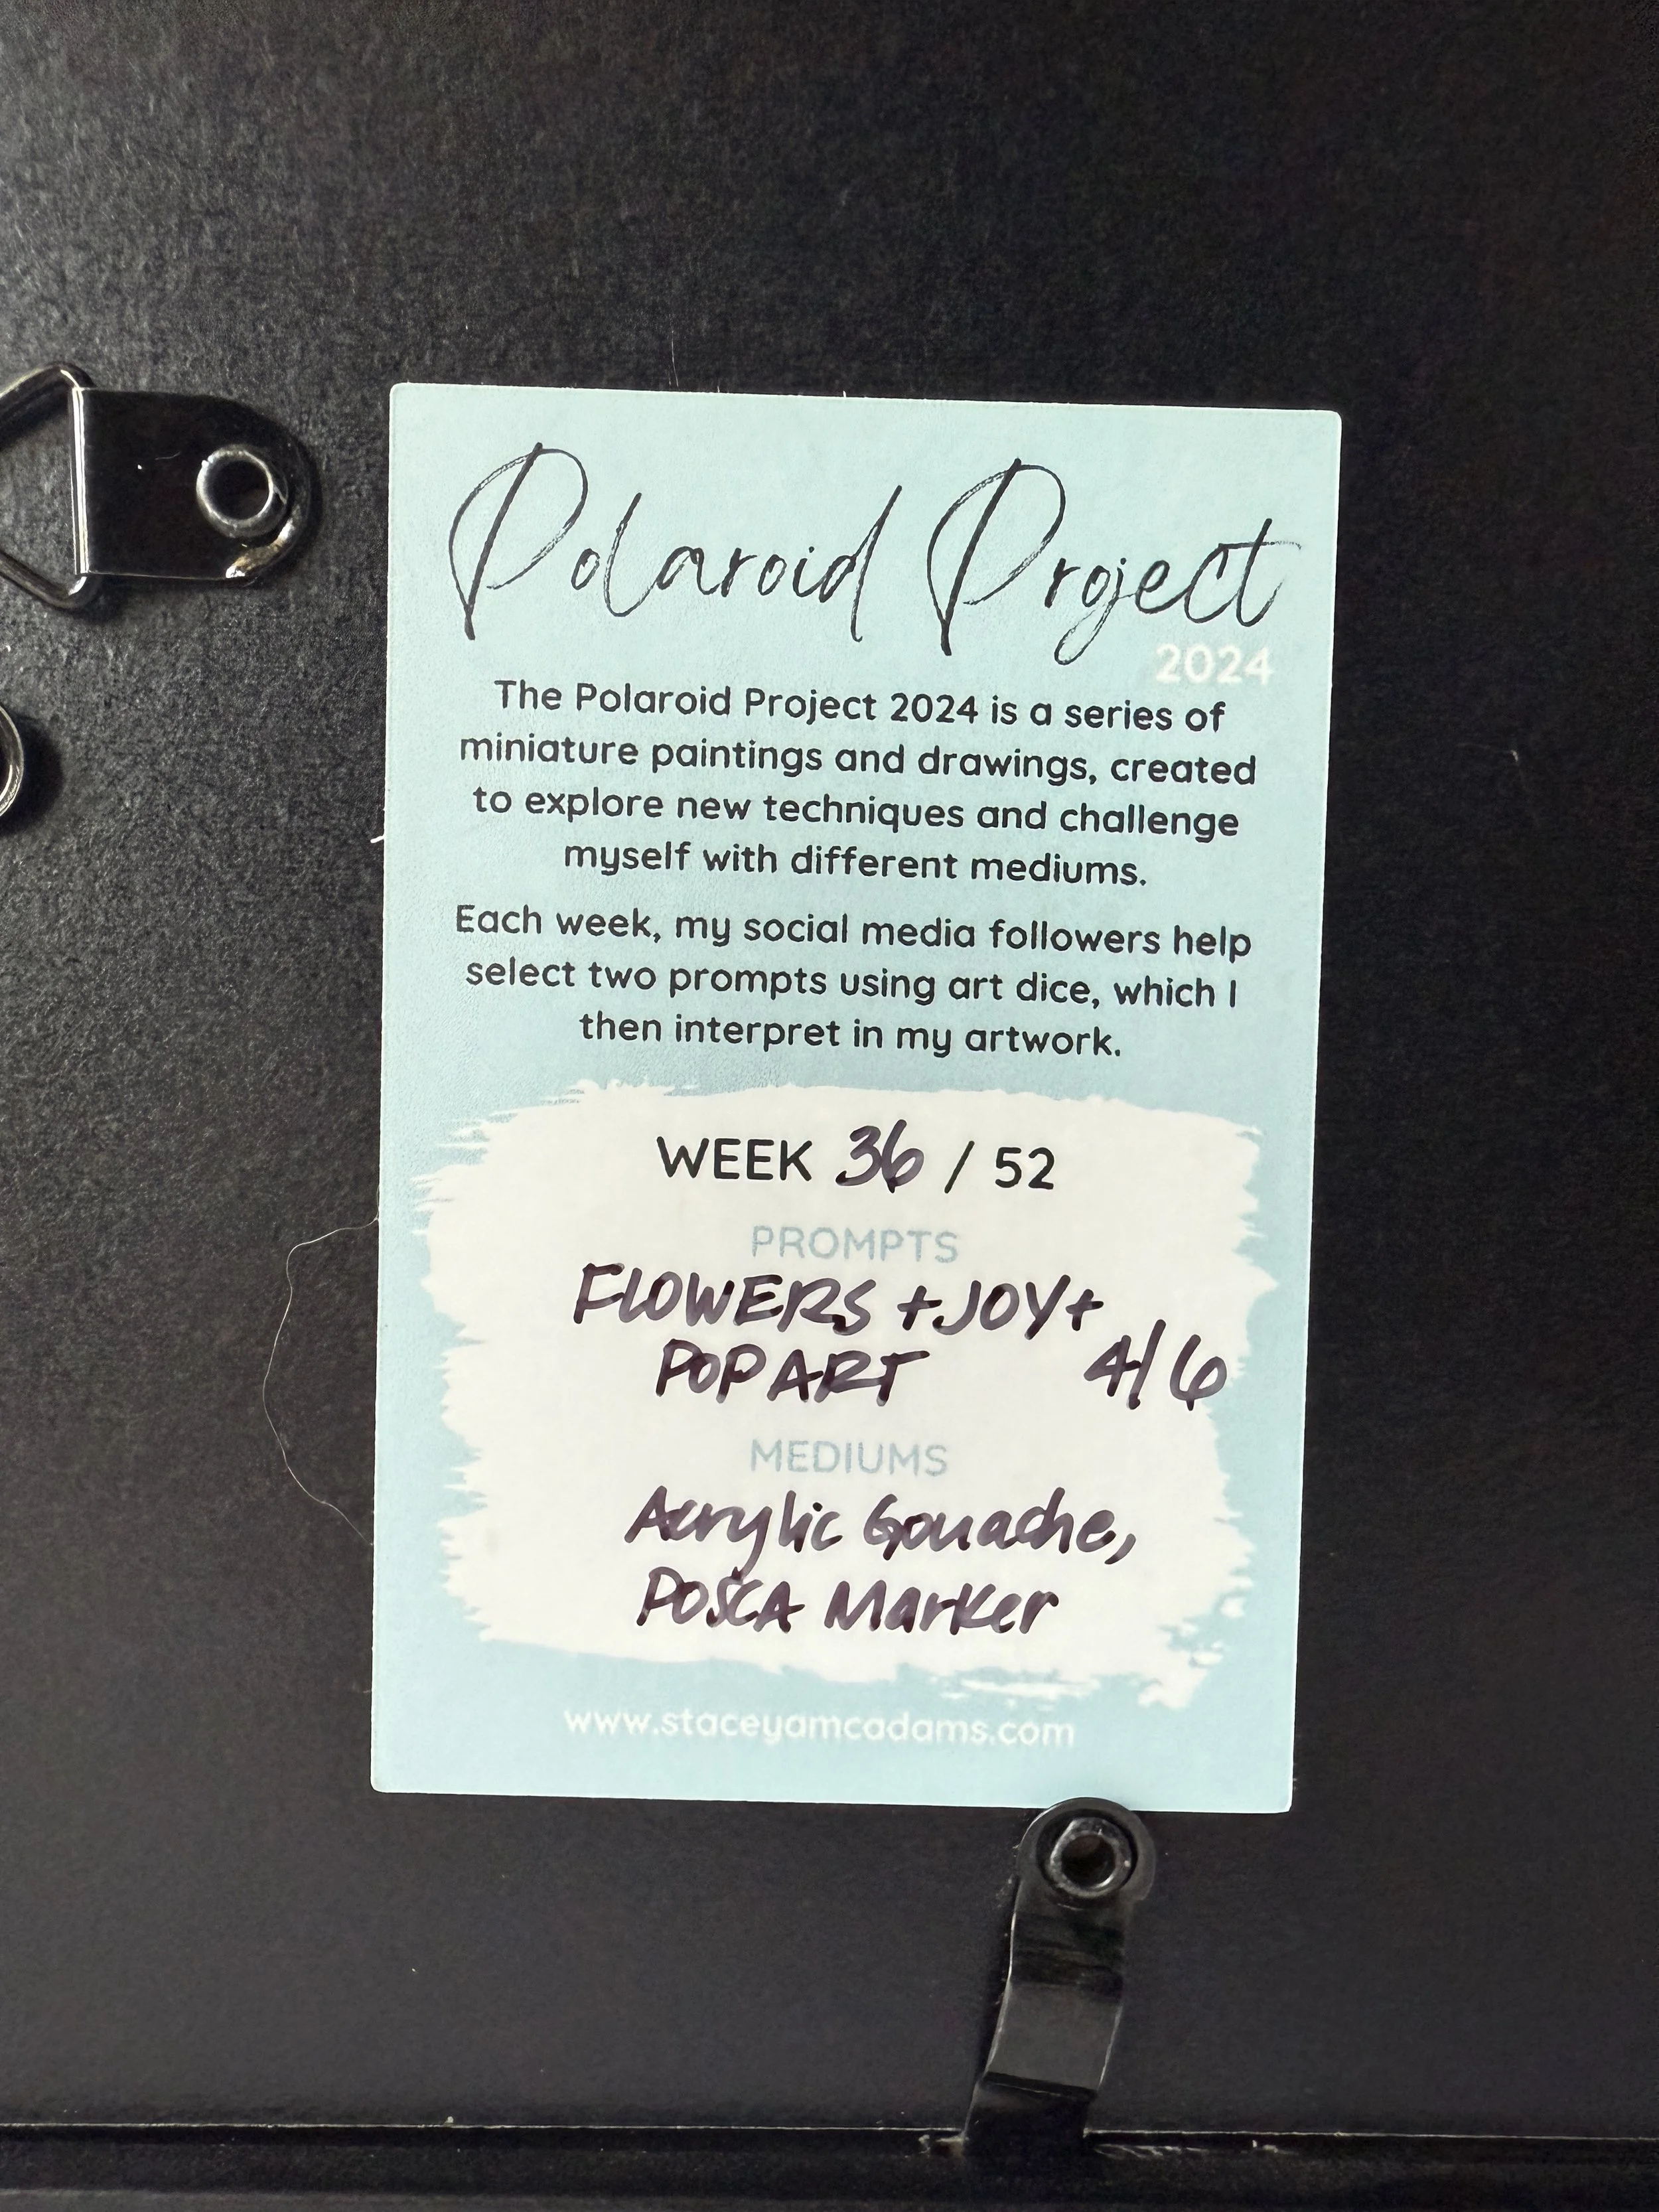 Polaroid Project
2024
The Polaroid Project 2024 is a series of
miniature paintings and drawings, created
to explore new techniques and challenge
myself with different mediums.
Each week, my social media followers help
select two prompts using art dice, which I
then interpret in my artwork.
WEEK 36 / 52
PROMPTS
FLOWERS + JOY +
POP ART 4/6
MEDIUMS
Acrylic Gouache,
POSCA Marker
www.staceyamcadams.com